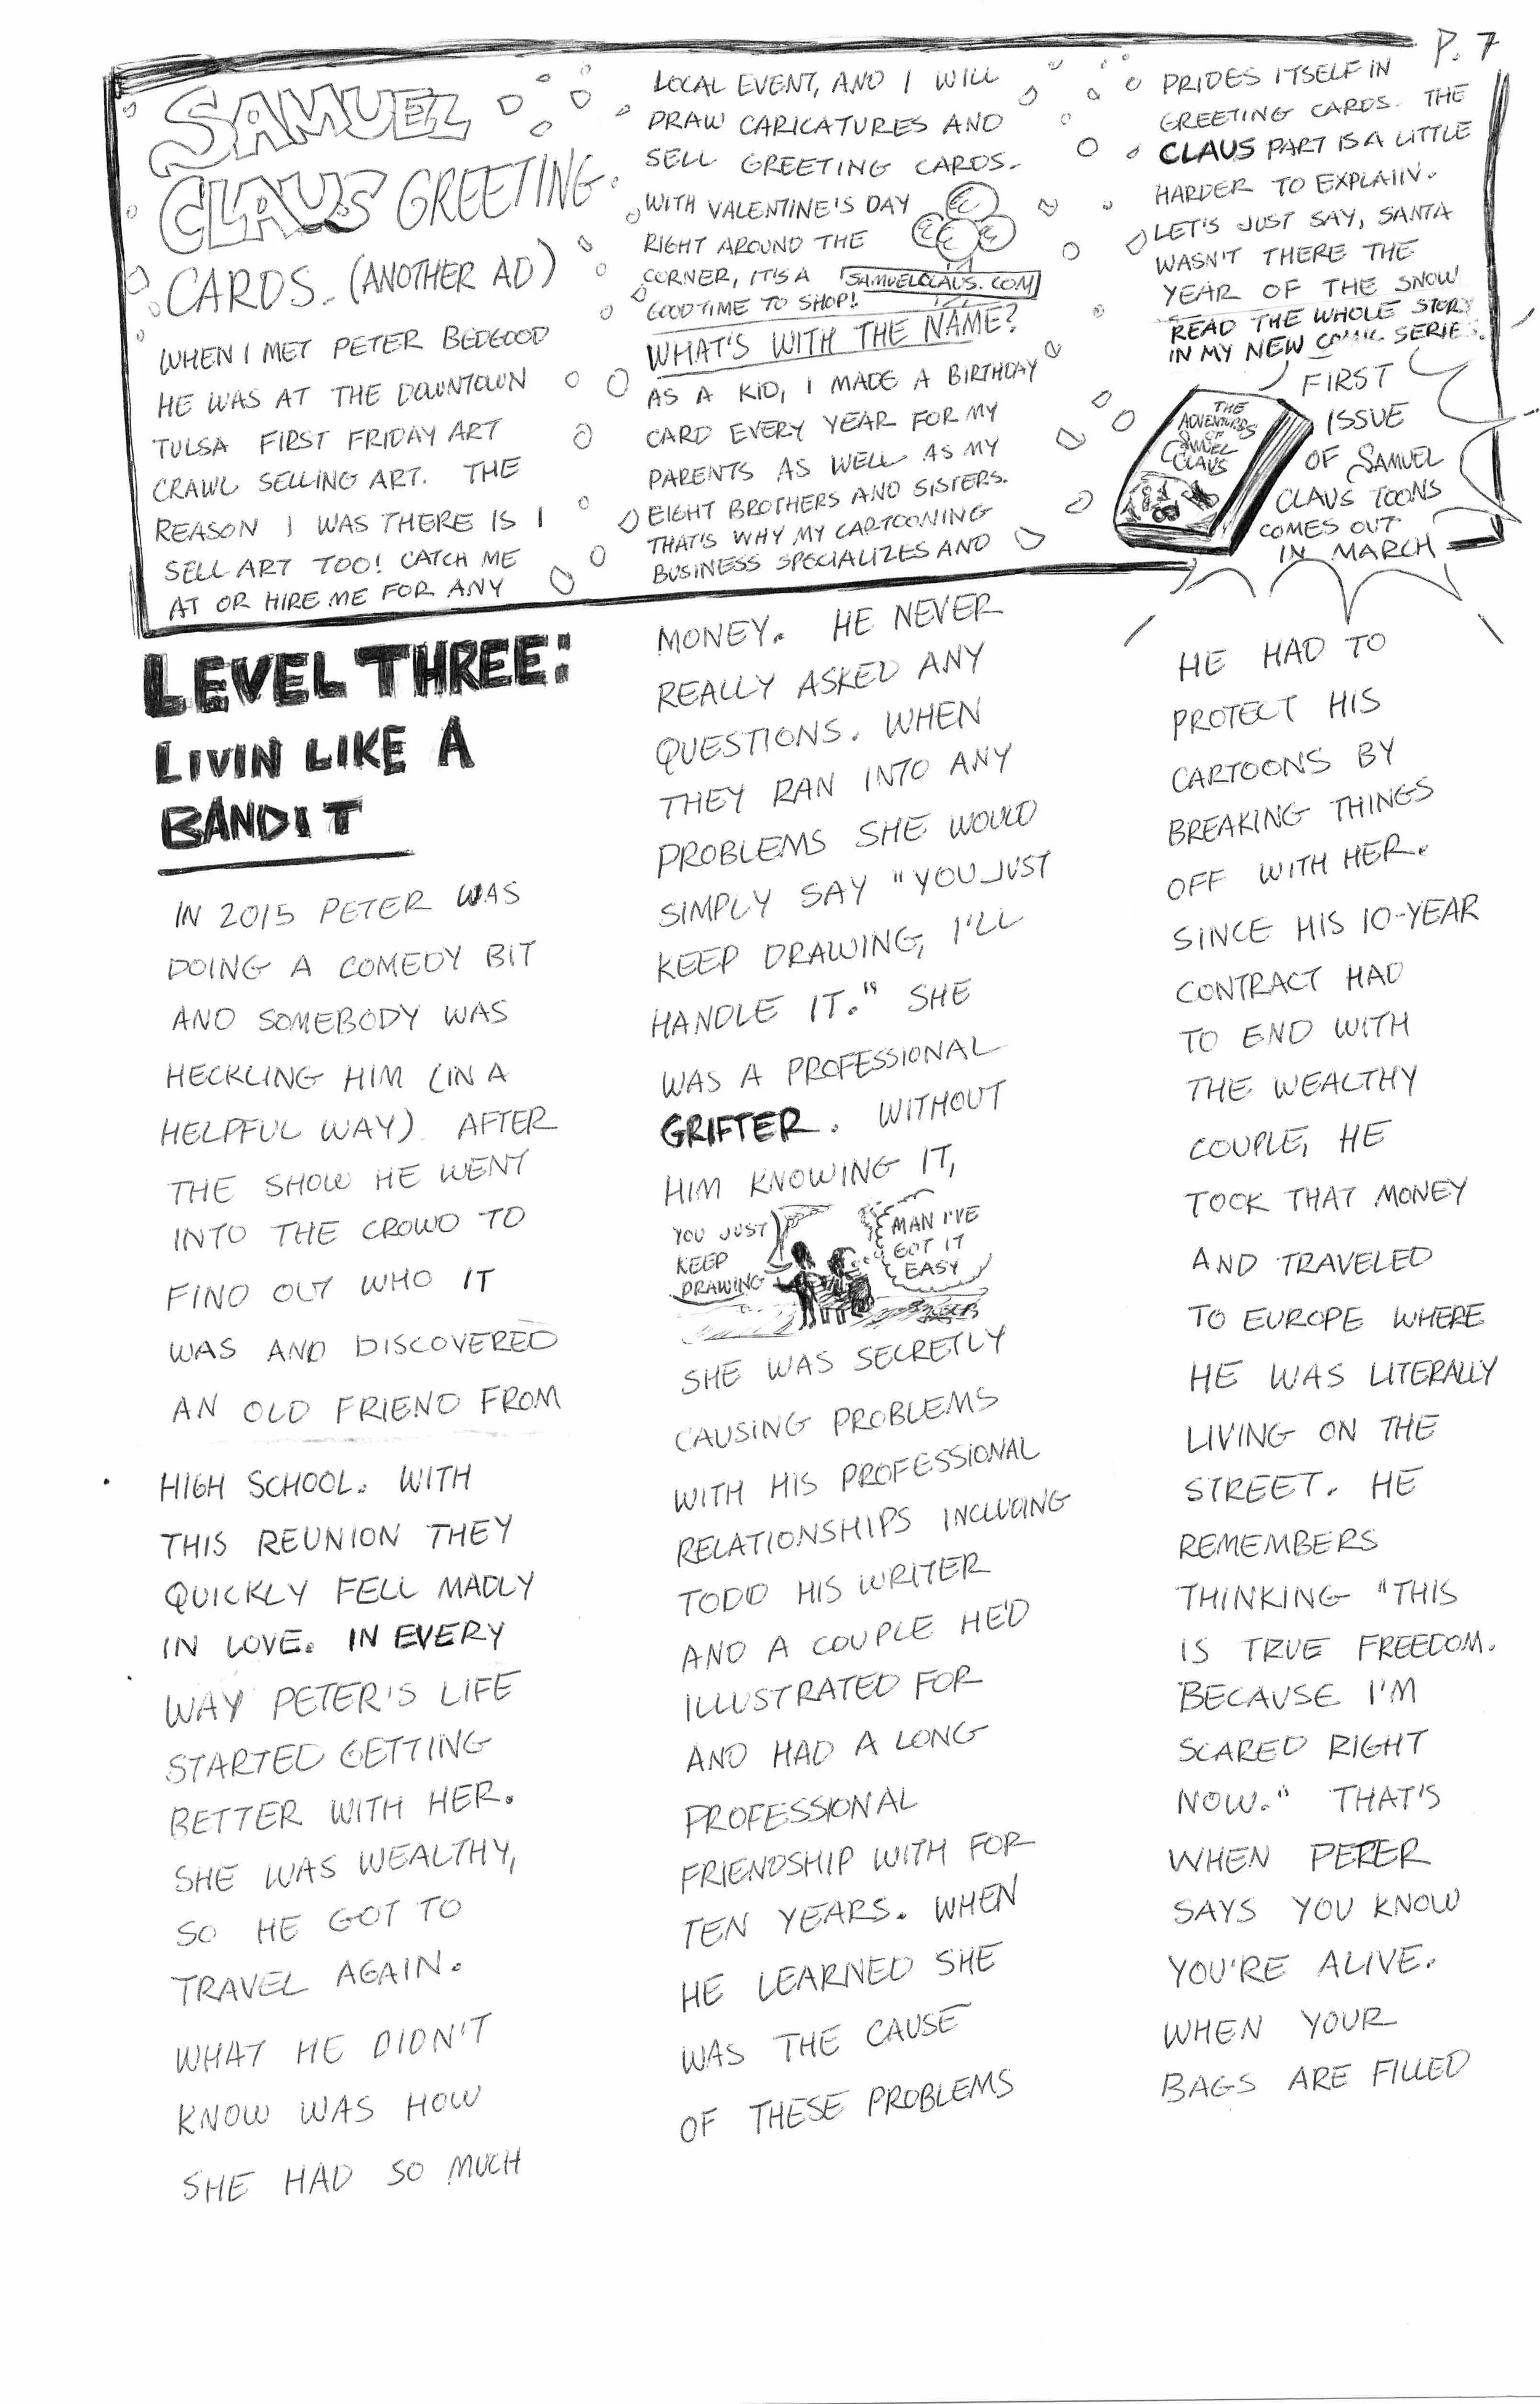 P. 7
SAMUEL
CLAUS GREETING
CARDS. (ANOTHER AD)
WHEN I MET PETER BEDGOOD
HE WAS AT THE DOWNTOWN
TULSA FIRST FRIDAY ART
CRAWL SELLING ART. THE
REASON I WAS THERE IS I
SELL ART TOO! CATCH ME
AT OR HIRE ME FOR ANY
LOCAL EVENT, AND I WILL
DRAW CARICATURES AND
SELL GREETING CARDS.
WITH VALENTINE'S DAY
RIGHT AROUND THE
CORNER, IT'S A
GOOD TIME TO SHOP!
SAMUELCLAUS.COM
WHAT'S WITH THE NAME?
AS A KID, I MADE A BIRTHDAY
CARD EVERY YEAR FOR MY
PARENTS AS WELL AS MY
EIGHT BROTHERS AND SISTERS.
THAT'S WHY MY CARTOONING
BUSINESS SPECIALIZES AND
PRIDES ITSELF IN
GREETING CARDS. THE
CLAUS PART IS A LITTLE
HARDER TO EXPLAIN.
LET'S JUST SAY, SANTA
WASN'T THERE THE
YEAR OF THE SNOW
READ THE WHOLE STORY
IN MY NEW COMIC SERIES.
THE
ADVENTURES
OF
SAMUEL
CLAUS
FIRST
ISSUE
OF SAMUEL
CLAUS TOONS
COMES OUT
IN MARCH
LEVEL THREE:
LIVIN LIKE A
BANDIT
IN 2015 PETER WAS
DOING A COMEDY BIT
AND SOMEBODY WAS
HECKLING HIM (IN A
HELPFUL WAY) AFTER
THE SHOW HE WENT
INTO THE CROWD TO
FIND OUT WHO IT
WAS AND DISCOVERED
AN OLD FRIEND FROM
HIGH SCHOOL. WITH
THIS REUNION THEY
QUICKLY FELL MADLY
IN LOVE. IN EVERY
WAY PETER'S LIFE
STARTED GETTING
BETTER WITH HER.
SHE WAS WEALTHY,
SO HE GOT TO
TRAVEL AGAIN.
WHAT HE DIDN'T
KNOW WAS HOW
SHE HAD SO MUCH
MONEY. HE NEVER
REALLY ASKED ANY
QUESTIONS. WHEN
THEY RAN INTO ANY
PROBLEMS SHE WOULD
SIMPLY SAY "YOU JUST
KEEP DRAWING, I'LL
HANDLE IT." SHE
WAS A PROFESSIONAL
GRIFTER. WITHOUT
HIM KNOWING IT,
YOU JUST
KEEP
DRAWING
MAN I'VE
GOT IT
EASY
SHE WAS SECRETLY
CAUSING PROBLEMS
WITH HIS PROFESSIONAL
RELATIONSHIPS INCLUDING
TODD HIS WRITER
AND A COUPLE HE'D
ILLUSTRATED FOR
AND HAD A LONG
PROFESSIONAL
FRIENDSHIP WITH FOR
TEN YEARS. WHEN
HE LEARNED SHE
WAS THE CAUSE
OF THESE PROBLEMS
HE HAD TO
PROTECT HIS
CARTOONS BY
BREAKING THINGS
OFF WITH HER.
SINCE HIS 10-YEAR
CONTRACT HAD
TO END WITH
THE WEALTHY
COUPLE, HE
TOOK THAT MONEY
AND TRAVELED
TO EUROPE WHERE
HE WAS LITERALLY
LIVING ON THE
STREET. HE
REMEMBERS
THINKING "THIS
IS TRUE FREEDOM.
BECAUSE I'M
SCARED RIGHT
NOW." THAT'S
WHEN PETER
SAYS YOU KNOW
YOU'RE ALIVE.
WHEN YOUR
BAGS ARE FILLED